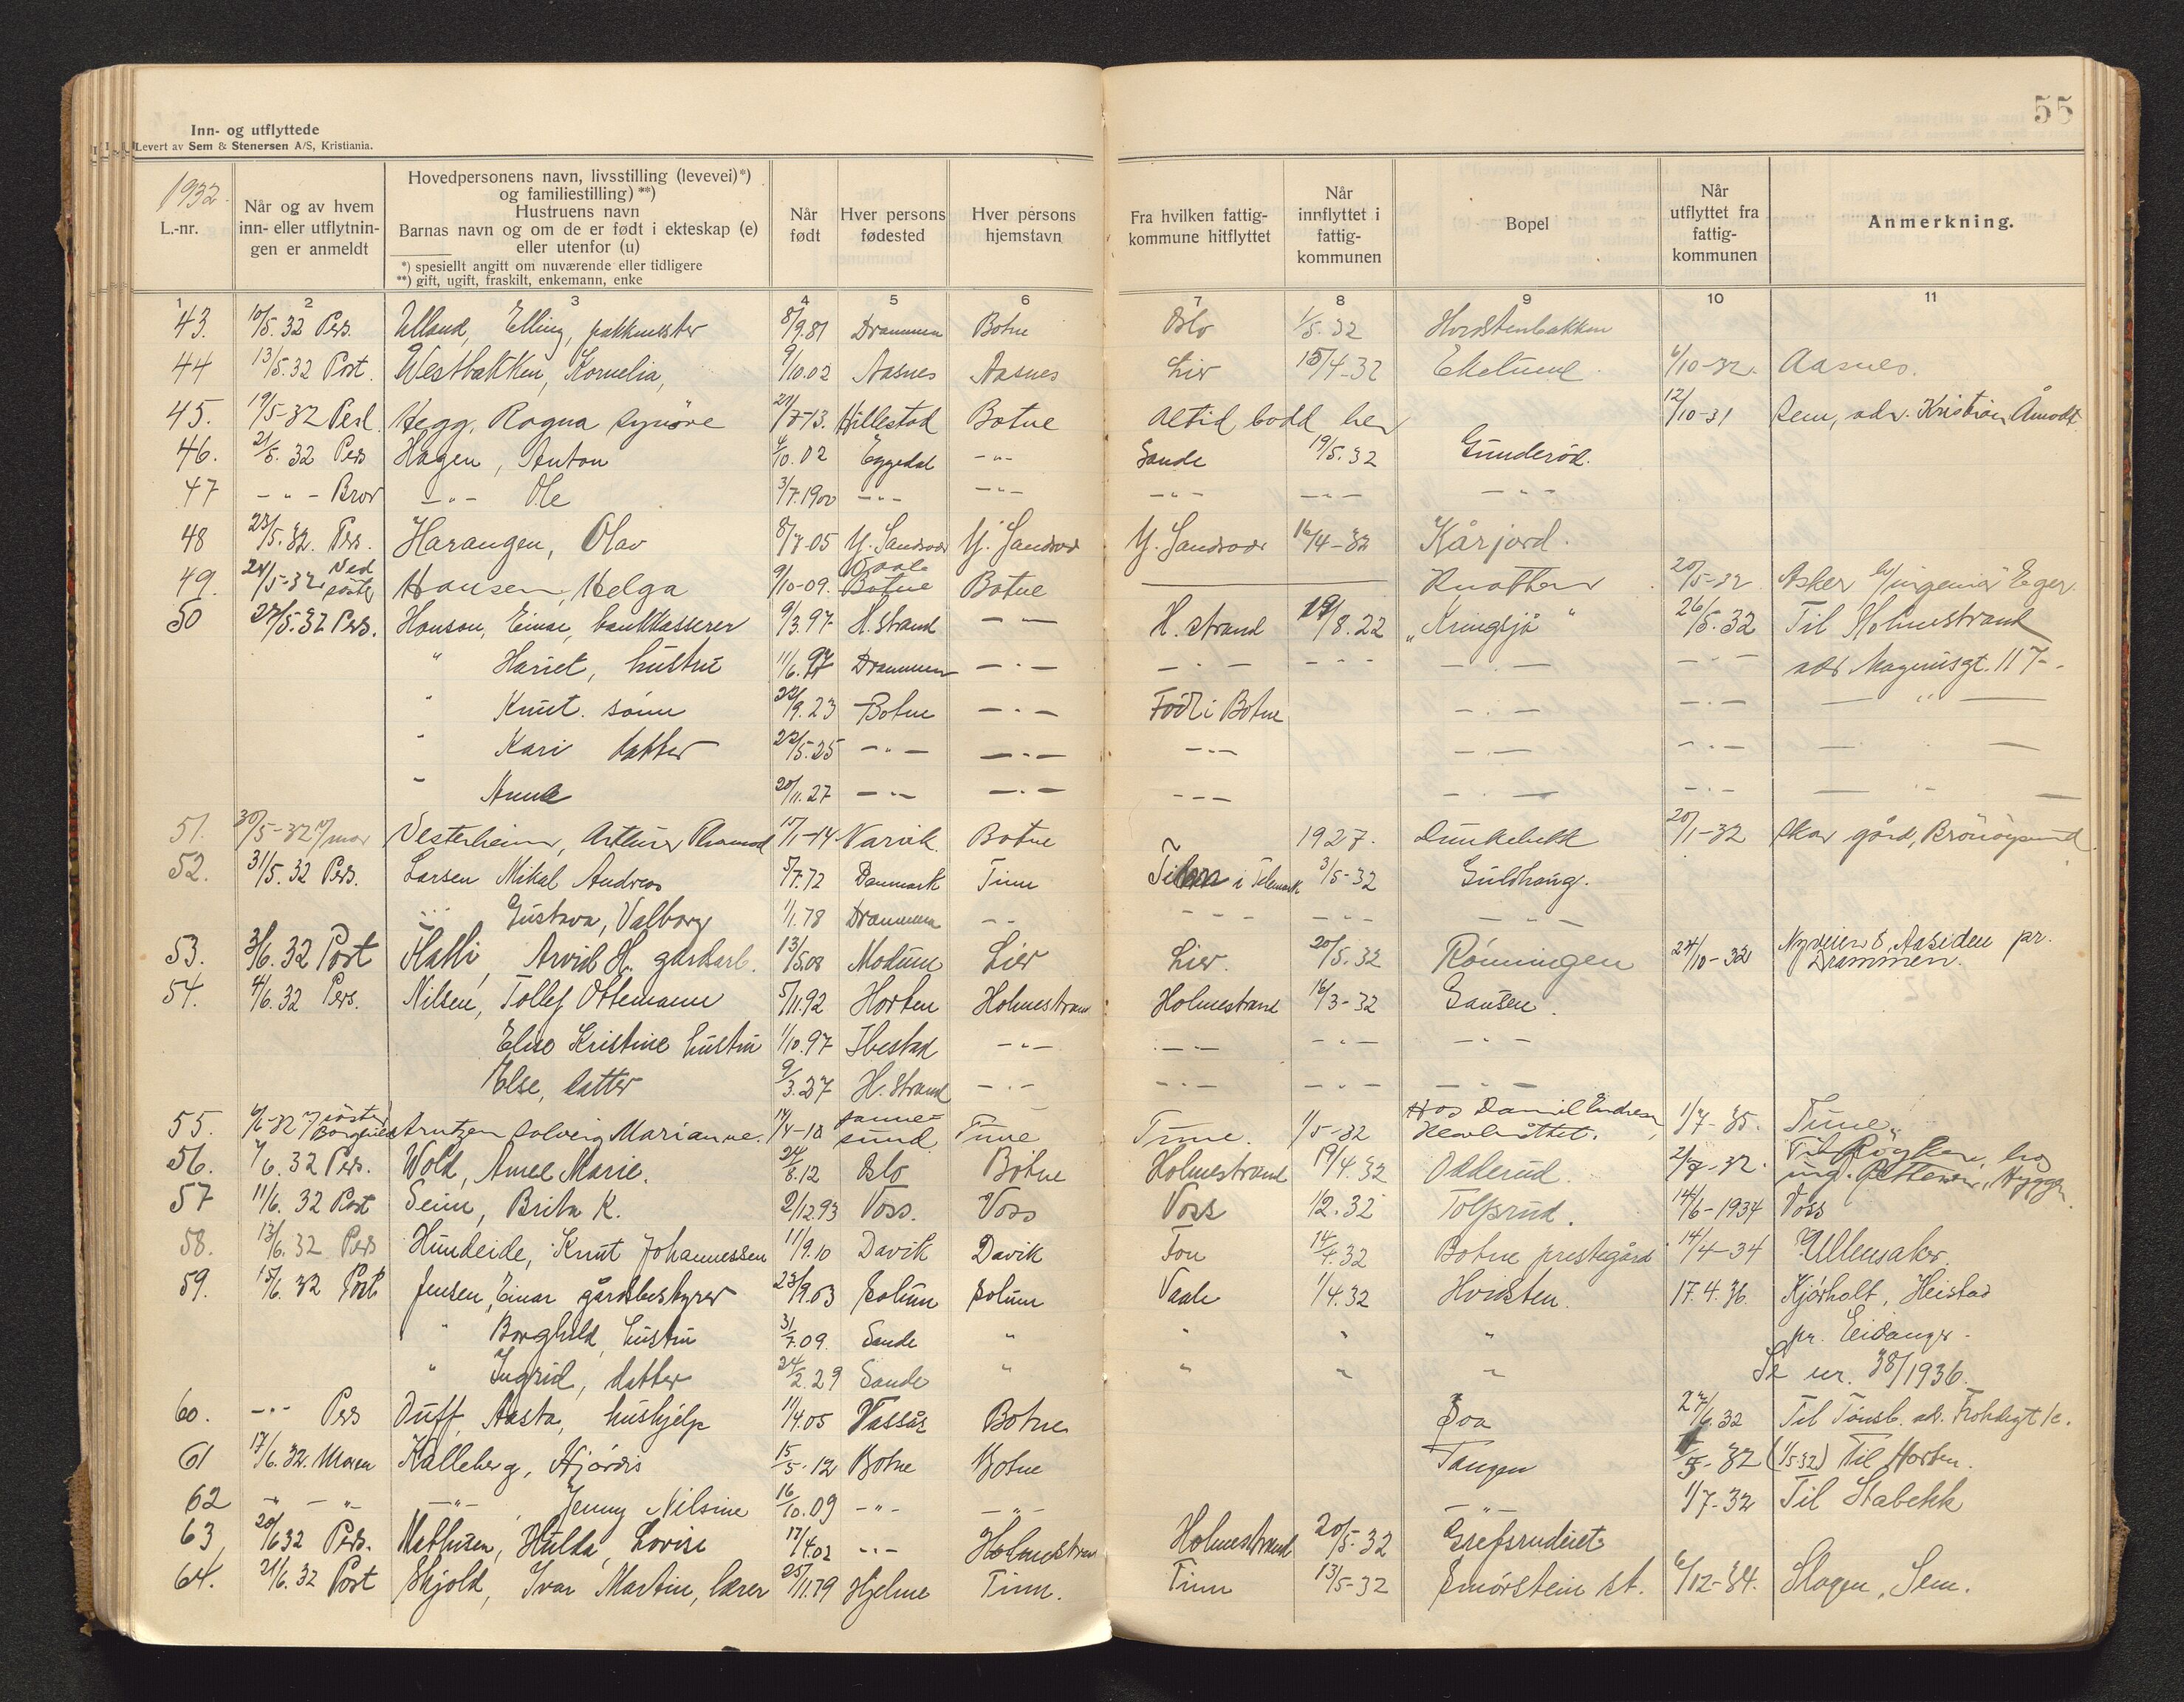 55
Inn- og utflyttede
Levert av Sem & Stenersen A/S, Kristiania.
1932.
L.-nr.
Når og av hvem inn- eller utflytningen er anmeldt
Hovedpersonens navn, livsstilling (levevei)*) og familiestilling)**)
Hustruens navn
Barnas navn og om de er født i ekteskap (e) eller utenfor (u)
*) spesiellt angitt om nuværende eller tidligere
**) gift, ugift, fraskilt, enkemann, enke
Når født
Hver persons fødested
Hver persons hjemstavn
Fra hvilken fattigkommune hitflyttet
Når innflyttet i fattigkommunen
Bopel
Når utflyttet fra fattigkommunen
Anmerkning.
1 2 3 4 5 6 7 8 9 10 11
43. 10/5.32 Pers. Ulland, Elling, pakkmester 8/9.81 Drammen Botne Oslo 1/5.32
44 13/5.32 Post. Westbakken, Kornelia, 9/10.02 Aasnes Aasnes Lier 15/4-32 Ekelund 6/10-32. Aasnes.
45. 19/5-32 Hegg, Ragna Synöve 7-13. Hillestad Botne Altid bodd her 12/10-31 Sem, adr. Kristian Åmodt.
46. 21/5.32 Pers Hagen, Anton 4/10.02 Eggedal -"- Sande 19/5.32 Gunderød.
47 -"- Bror -"- Ole 3/7.1900 -"- -"- -"- -"- -"-
48 23/5.32. Pers. Harangen, Olav 8/7-05 Y. Sandsvær Y. Sandsvær Y. Sandsvær 16/4-32 Kårjord.
49. 24/5-32 Ved söster Hansen, Helga 9/10-09. Vaale Botne Botne Knatten 20/5-32 Asker h/ingeniør Eger.
50 27/5.32 Pers. Hanson, Einar, bankkasserer 9/3.97 H.strand -"- H.strand 19/8.22 "Kringsjå" 26/5.32 Til Holmestrand
" Hariet, hustru 11/6.97 Drammen -"- -"- -"- -"- -"- adr Magnusgt. 117-.
" Knut. sönn 22/9.23 Botne -"- Född i Botne -"- -"- -"-
" Kari datter 22/5.25 -"- -"- -"- -"- -"- -"-
" Anne 20/11.27 -"- -"- -"- -"- -"- -"-
51. 30/5-32 v/mor Vesterheim, Arthur 1-14 Narvik. Botne 1927. Dunkebekk 20/1-32 Skar gård, Brönöysund
52. 31/5.32 Pers. Larsen Mikal Andreas 5/7.72 Danmark Tinn i Telemark 3/5-32 Guldhaug.
Gustava, Valborg 1/1.78 Drammen -"- -"- -"- -"-
53. 3/6.32 Post Arvid H. gårdsarb. 13/5.08 Modum Lier Lier. 20/5.32 Rønningen 24/10-32 Nyveien 8, Aasiden pr. Drammen.
54. 4/6.32 Pers. Nilsen, Tollef Ottemann 5/11.92 Horten Holmestrand Holmestrand 16/3-32 Gausen.
Elise Kristine hustru 1/10.97 Ibestad -"- -"- -"- -"-
Else, datter 9/3.27 H.strand -"- -"- -"- -"-
55. 6/6-32 v/söster Borghild Arntzen Solveig Marianne. 4-18 Sannesund Tune Tune. 1/5-32 Hos Daniel Endresen 1/7-35. Tune.
56. 7/6.32 Pers. Wold, Anne Marie. 24/8.12 Oslo Botne Holmestrand 19/4.32 Odderud. 2/7-32. Til Røyken, hos ing. Pettersen, Hyggen
57 11/6.32 Post Seim, Brita K. 2/12.93 Voss. Voss Voss 1/2.32 Tolfsrud. 14/6-1934 Voss
58. 13/6.32 Pers Hundeide, Knut Johannessen 11/9.10 Davik Davik Fon 14/4.32 Botne prestegård 14/4-34 Ullensaker.
59. 15/6.32 Post Jensen, Einar gårdsbestyrer 23/9.03 Solum Solum Vaale 1/4.32 Hvitsten. 17.4.36. Kjørholt, Heistad
" Borghild, hustru 31/7.09. Sande " " " " pr. Eidanger.
" Ingrid, datter 24/2.29 Sande " " " " Se nr. 38/1936.
60. -"- Pers Duff, Aasta, hushjelp 11/4.05 Vassås Botne 27/6.32 Til Tønsb. adr.
61 17/6.32. Moren Kalleberg, Hjördis 15/5-12 Botne Botne Tangen 1/5-32 (1/5 32) Til Horten.
62 -"- -"-, Jenny Nilsine 16/10.09 -"- -"- -"- 1/7-32 Til Stabekk
63 20/6 32 Pers. Mathisen, Hulda, Lovise 17/4.02 -"- Holmestrand Holmestrand 20/5-32 Grefsrudeiet
64. 21/6.32 Post Skjold, Ivar Martin, lærer 25/11.79 Hjelme Tinn. Tinn 13/5-32 Smörstein st. 6/12-34. Slagen, Sem.